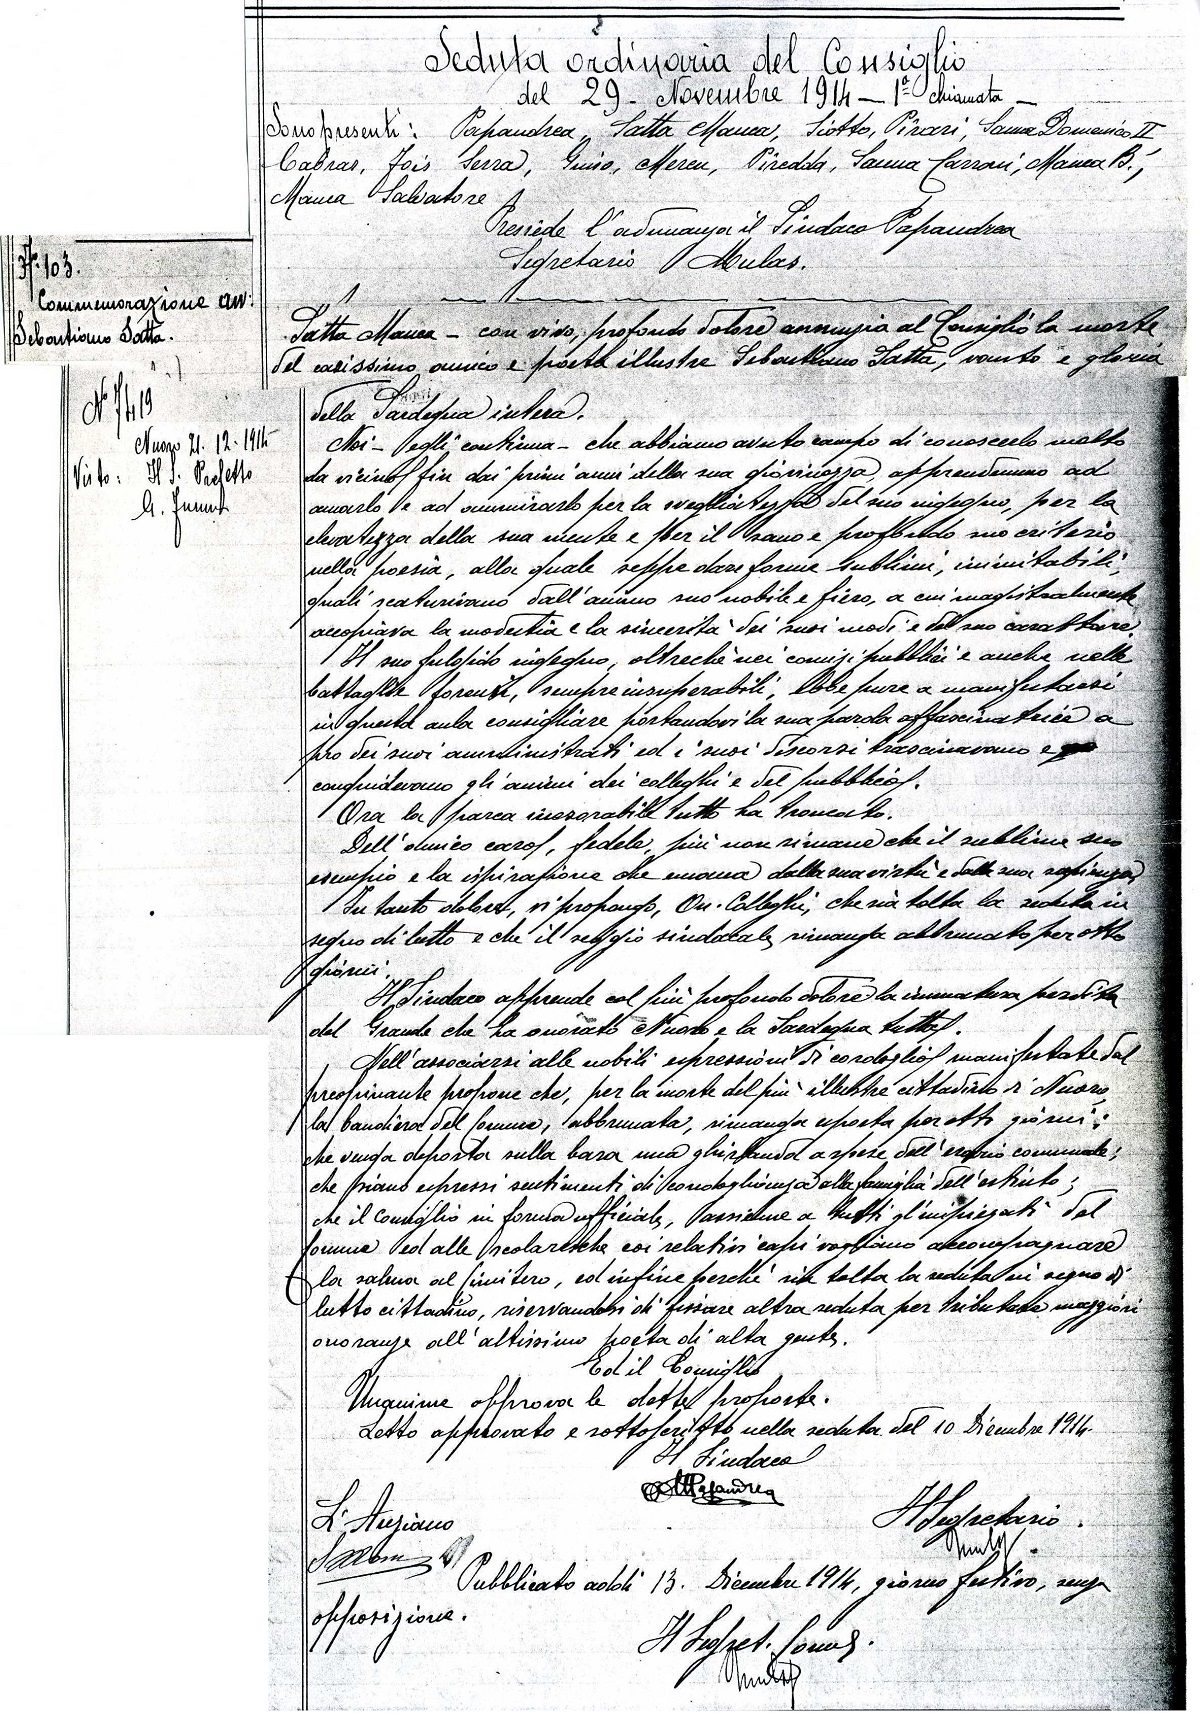 Seduta ordinaria del Consiglio
del 29 - Novembre 1914 - 1ª chiamata -
Sono presenti: Papandrea, Satta Manca, Siotto, Pirari, Sanna Domenico II
Cabras, Fois Serra, Guiso, Mereu, Piredda, Sanna Carroni, Manca B.,
Manca Salvatore
Presiede l'adunanza il Sindaco Papandrea
Segretario Mulas.
N. 103.
Commemorazione avv.
Sebastiano Satta.
N° 7419
Nuoro 21. 12. 1914
Visto: Il S. Prefetto
G.
Satta Manca - con vivo, profondo dolore annunzia al Consiglio la morte
del carissimo amico e poeta illustre Sebastiano Satta, vanto e gloria
della Sardegna intera.
Noi - egli continua - che abbiamo avuto campo di conoscerlo molto
da vicino fin dai primi anni della sua giovinezza, apprendemmo ad
amarlo e ad ammirarlo per la svegliatezza del suo ingegno, per la
elevatezza della sua mente e per il sano e profondo suo criterio
nella poesia, alla quale seppe dare forme sublimi, inimitabili,
quali scaturivano dall'animo suo nobile e fiero, a cui magistralmente
accopiava la modestia e la sincerità dei suoi modi e del suo carattere.
Il suo fulgido ingegno, oltrechè nei comizi pubblici e anche nelle
battaglie forensi, sempre insuperabili, ebbe pure a manifestarsi
in questa aula consigliare portandovi la sua parola affascinatrice a
pro dei suoi amministrati ed i suoi discorsi trascinavano e
conquidevano gli animi dei colleghi e del pubblico.
Ora la parca inesorabile tutto ha troncato.
Dell'amico caro, fedele, più non rimane che il sublime suo
esempio e la ispirazione che emana dalla sua virtù e dalla sua sapienza.
In tanto dolore, vi propongo, On. Colleghi, che sia tolta la seduta in
segno di lutto e che il seggio sindacale rimanga abbrunato per otto
giorni.
Il Sindaco apprende col più profondo dolore la immatura perdita
del Grande che ha onorato Nuoro e la Sardegna tutta.
Nell'associarsi alle nobili espressioni di cordoglio manifestate dal
preopinante propone che, per la morte del più illustre cittadino di Nuoro,
la bandiera del Comune, abbrunata, rimanga esposta per otto giorni;
che venga deposta sulla bara una ghirlanda a spese dell'erario comunale;
che siano espressi sentimenti di condoglianza alla famiglia dell'estinto;
che il Consiglio in forma ufficiale, assieme a tutti gl'impiegati del
Comune ed alle scolaresche coi relativi capi vogliano accompagnare
la salma al Cimitero, ed infine perchè sia tolta la seduta in segno di
lutto cittadino, riservandosi di fissare altra seduta per tributare maggiori
onoranze all'altissimo poeta di alta gente.
Ed il Consiglio
Unanime approva le dette proposte.
Letto approvato e sottoscritto nella seduta del 10 Dicembre 1914.
Il Sindaco
Papandrea
L'Anziano
Il Segretario.
Mulas
Pubblicato addì 13. Dicembre 1914, giorno festivo, senza
opposizione.
Il Segret. Com.
Mulas